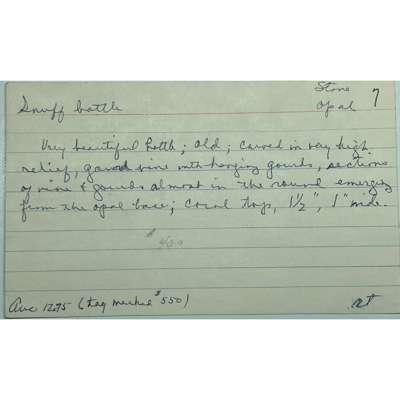 Stone
Snuff bottle Opal 7
Very beautiful bottle; old; carved in very high
relief, gourd vine with hanging gourds, sections
of vine & gourds almost in the round emerging
from the opal base; coral top, 1½", 1" wide.
Auc 1275 (tag marked $550)